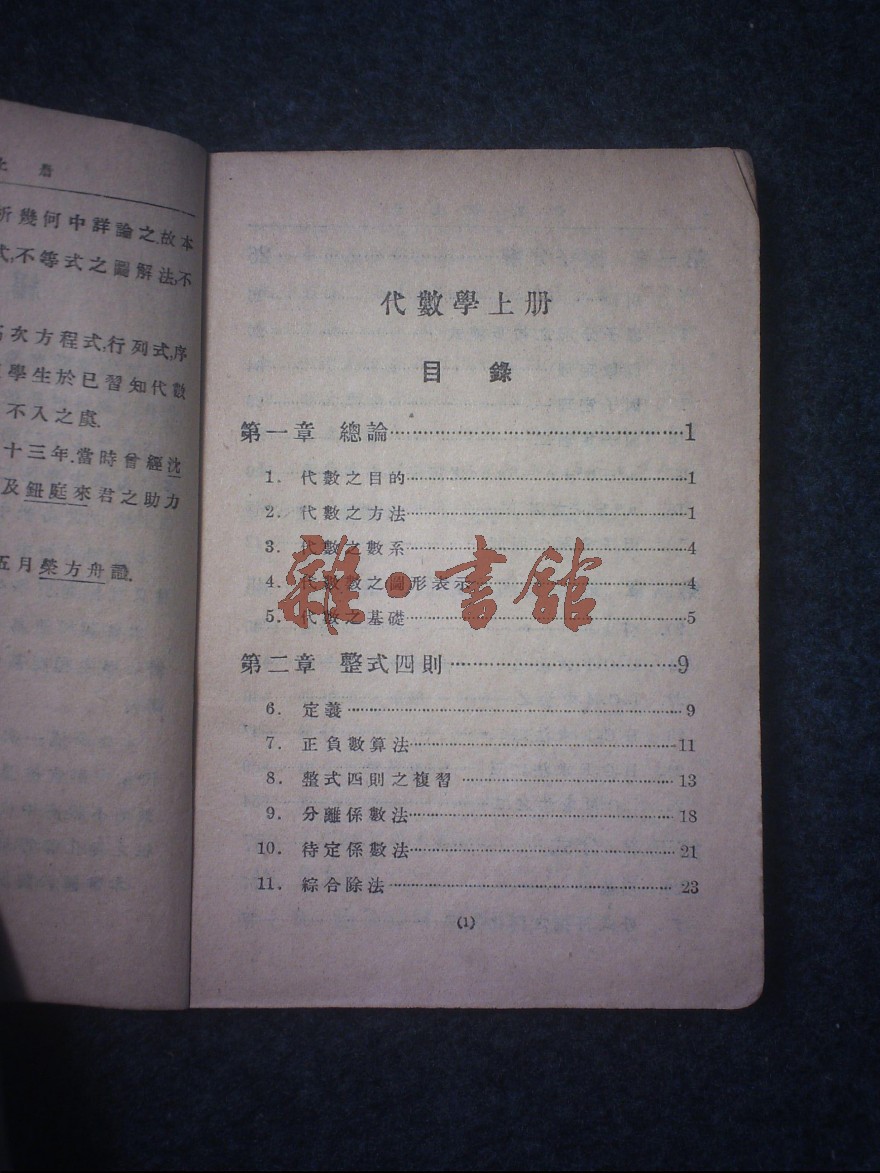 上册
析幾何中詳論之.故本
式,不等式之圖解法,不
高次方程式,行列式,序
學生於已習知代數
不入之虞.
十三年.當時曾經沈
及鈕庭來君之助力
五月榮方舟識.
代數學上册
目 錄
第一章 總論……1
1. 代數之目的……1
2. 代數之方法……1
3. 代數之數系……4
4. 代數數之圖形表示……4
5. 代數之基礎……5
第二章 整式四則……9
6. 定義……9
7. 正負數算法……11
8. 整式四則之複習……13
9. 分離係數法……18
10. 待定係數法……21
11. 綜合除法……23
(1)
雜·書館